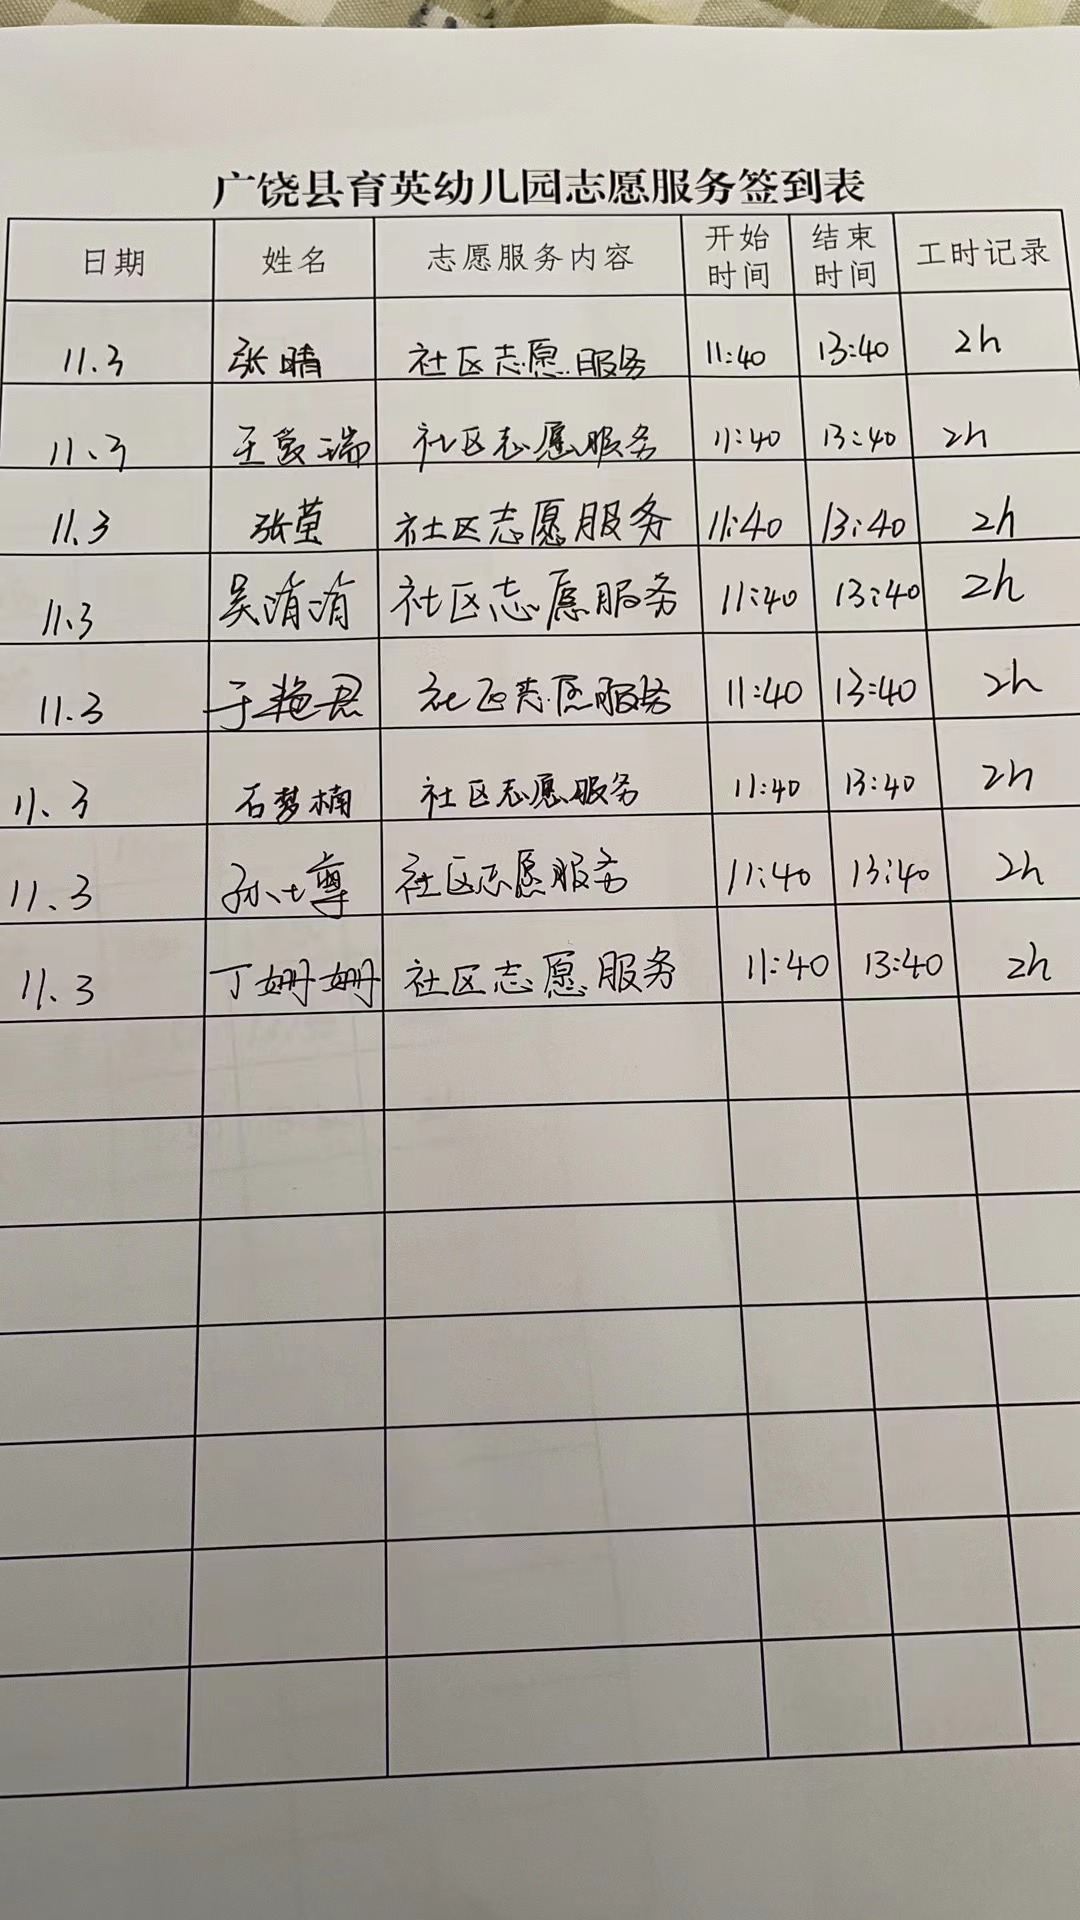 广饶县育英幼儿园志愿服务签到表
日期 姓名 志愿服务内容 开始时间 结束时间 工时记录
11.3 张晴 社区志愿服务 11:40 13:40 2h
11.3 王爱瑞 社区志愿服务 11:40 13:40 2h
11.3 张莹 社区志愿服务 11:40 13:40 2h
11.3 吴清清 社区志愿服务 11:40 13:40 2h
11.3 于艳君 社区志愿服务 11:40 13:40 2h
11.3 石梦楠 社区志愿服务 11:40 13:40 2h
11.3 社区志愿服务 11:40 13:40 2h
11.3 丁姗姗 社区志愿服务 11:40 13:40 2h